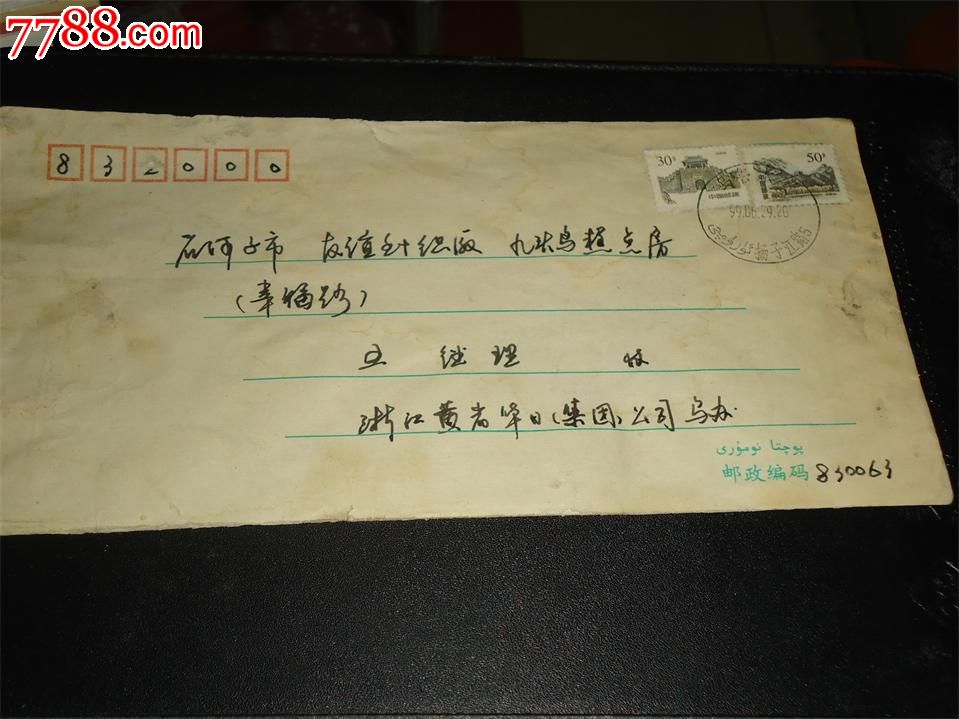 7788.com
832000
30分
中国邮政
50分
99.06.29.20
扬子江路
石河子市 友谊 九味鸟糕点房
(幸福路)
王 经理 收
浙江黄岩华日(集团)公司乌办
پوچتا نومۇرى
邮政编码 830063